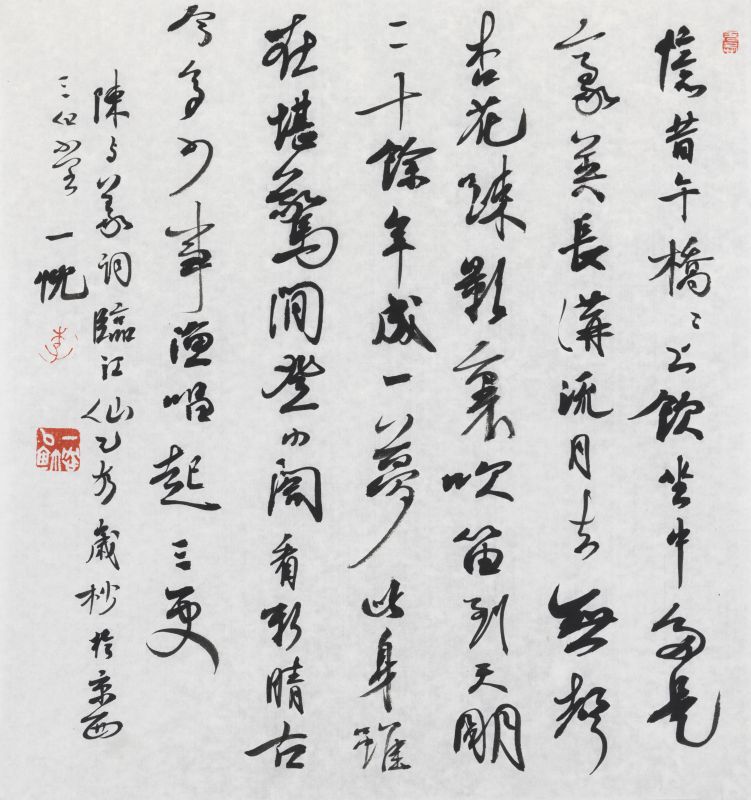 憶昔午橋橋上飲坐中多是
豪英長溝流月去無聲
杏花疎影裏吹笛到天明
二十餘年成一夢此身雖
在堪驚閒登小閣看新晴古
今多少事漁唱起三更
陳與義詞臨江仙乙酉歲杪於京西
三伯堂一忱